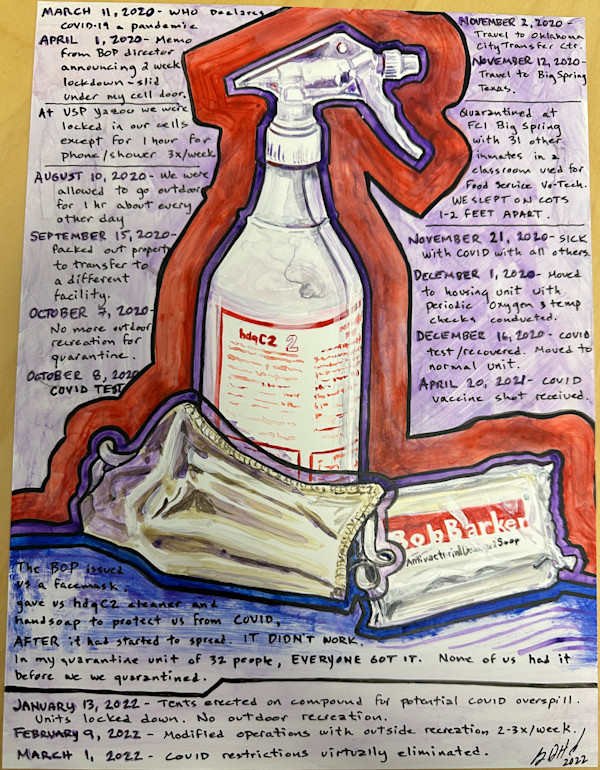 MARCH 11, 2020 - WHO Declares
COVID-19 a pandemic
APRIL 1, 2020 - Memo
from BOP director
announcing 2 week
lockdown - slid
under my cell door.
At USP Yazoo we were
locked in our cells
except for 1 hour for
phone/shower 3x/week
AUGUST 10, 2020 - We were
allowed to go outdoor
for 1 hr about every
other day
SEPTEMBER 15, 2020 -
Packed out property
to transfer to
a different
facility.
OCTOBER 7, 2020 -
No more outdoor
recreation for
quarantine.
OCTOBER 8, 2020
COVID TEST
NOVEMBER 2, 2020 -
Travel to Oklahoma
City Transfer Ctr.
NOVEMBER 12, 2020 -
Travel to Big Spring
Texas.
Quarantined at
FCI Big Spring
with 31 other
inmates in a
classroom used for
Food Service Vo-Tech.
WE SLEPT ON COTS
1-2 FEET APART.
NOVEMBER 21, 2020 - SICK
with COVID with all others.
DECEMBER 1, 2020 - Moved
to housing unit with
periodic oxygen & temp
checks conducted.
DECEMBER 16, 2020 - COVID
test/recovered. Moved to
normal unit.
APRIL 20, 2021 - COVID
vaccine shot received.
hdqC2 2
BobBarker
Antibacterial Deodorant Soap
The BOP issued
us a facemask,
gave us hdqC2 cleaner and
handsoap to protect us from COVID,
AFTER it had started to spread. IT DIDN'T WORK.
In my quarantine unit of 32 people, EVERYONE GOT IT. None of us had it
before we we quarantined.
JANUARY 13, 2022 - Tents erected on compound for potential COVID overspill.
Units locked down. No outdoor recreation.
FEBRUARY 9, 2022 - Modified operations with outside recreation 2-3x/week.
MARCH 1, 2022 - COVID restrictions virtually eliminated.
2022